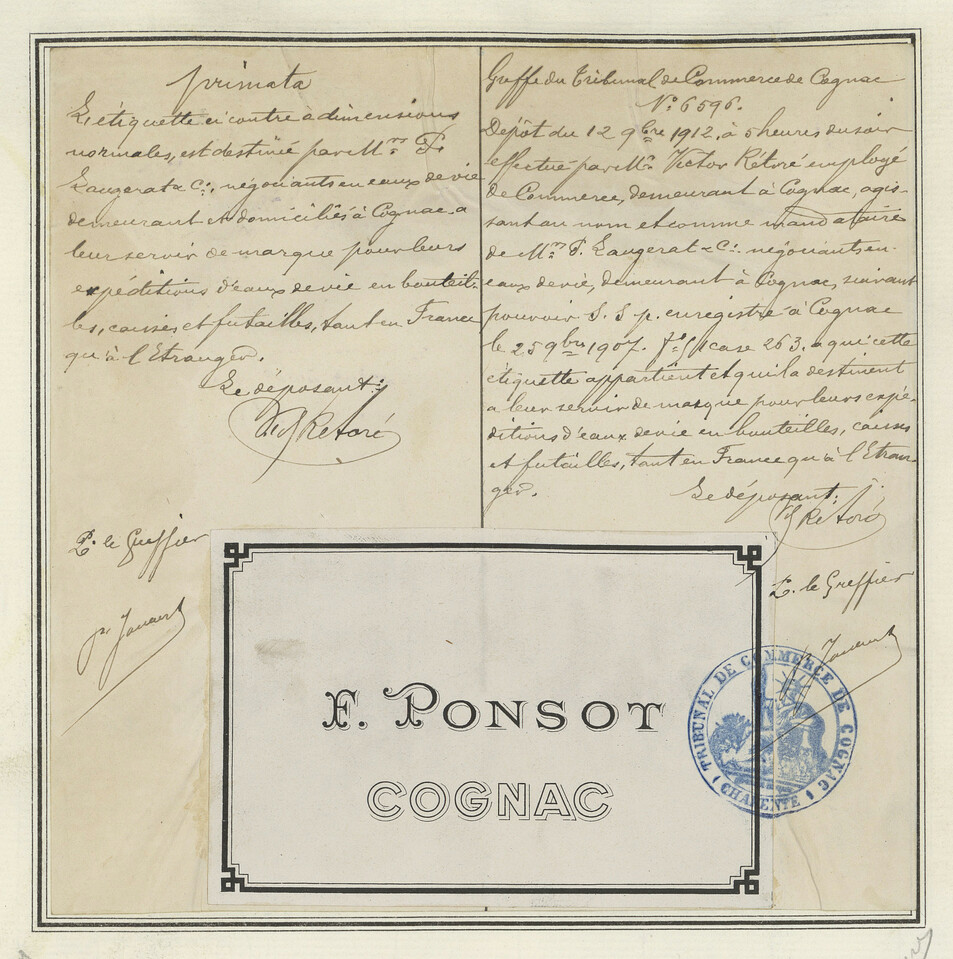 primata
L'étiquette ci contre à dimensions
normales, est destinée par Mrs P.
Laugerat & Cie. négociants en eaux de vie
demeurant et domiciliés à Cognac, a
leur servir de marque pour leurs
expéditions d'eaux de vie en bouteil-
les, caisses et futailles, tant en France
qu'à l'Etranger.
Le déposant:
Vor Rétoré
P. le Greffier
Greffe du Tribunal de Commerce de Cognac
No. 6596.
Dépôt du 12 9bre 1912. à 5 heures du soir
effectué par Mr. Victor Rétoré employé
de Commerce, demeurant à Cognac, agis-
sant au nom et comme mandataire
de Mrs P. Laugerat & Cie. négociants en
eaux de vie, demeurant à Cognac, suivant
pouvoir S. S. p. enregistré à Cognac
le 25 9bre 1907. case 263. a qui cette
étiquette appartient et qui la destinent
a leur servir de marque pour leurs expé-
ditions d'eaux de vie en bouteilles, caisses
et futailles, tant en France qu'à l'Etran-
ger.
Le déposant:
Vor Rétoré
P. le Greffier
F. PONSOT
COGNAC
TRIBUNAL DE COMMERCE DE COGNAC
(CHARENTE)